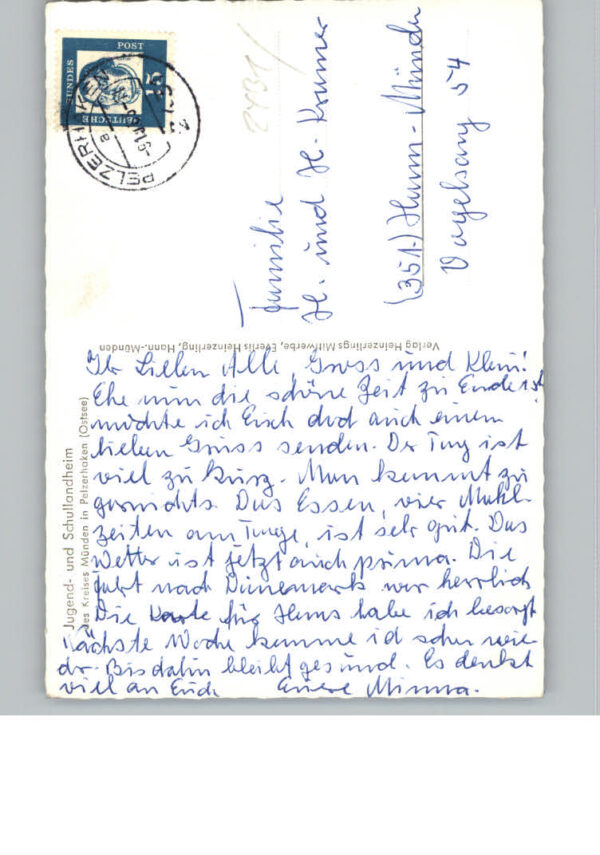 Jugend- und Schullandheim
des Kreises Münden in Pelzerhaken (Ostsee)
Verlag Heinzerlings Mittwerbe, Eventis Heinzerling, Hann.-Münden
DEUTSCHE
BUNDES
POST
15
PELZERHAKEN
a
Familie
H. und H. Kramer
(351) Hann-Münden
Vogelsang 54
Ihr Lieben Alle, Gross und Klein!
Ehe nun die schöne Zeit zu Ende ist
möchte ich Euch doch auch einen
lieben Gruss senden. Der Tag ist
viel zu kurz. Man kommt zu
garnichts. Das Essen, vier Mahl-
zeiten am Tage, ist sehr gut. Das
Wetter ist jetzt auch prima. Die
Fahrt nach Dänemark war herrlich
Die Karte für Hans habe ich besorgt
Nächste Woche komme ich schon wie-
der. Bis dahin bleibt gesund. Es denkt
viel an Euch Eure Minna.